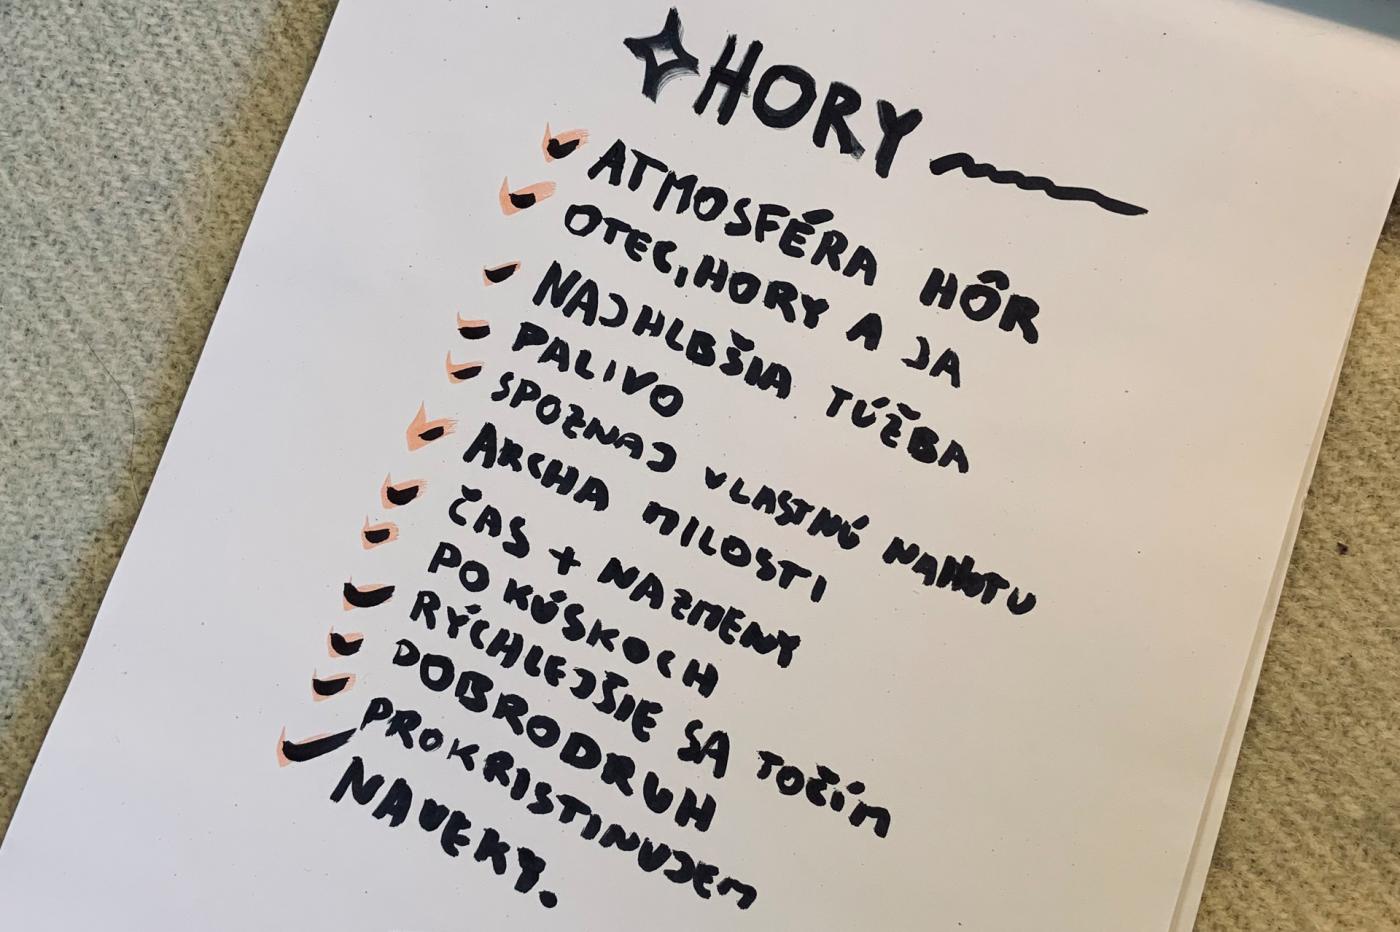 HORY
ATMOSFÉRA HÔR
OTEC, HORY A JA
NAJHLBŠIA TÚŽBA
PALIVO
SPOZNAJ VLASTNÚ NAHOTU
ARCHA MILOSTI
ČAS + NA ZMENY
PO KÚSKOCH
RÝCHLEJŠIE SA TOČÍM
DOBRODRUH
PROKRISTINUJEM
NAVEKY.